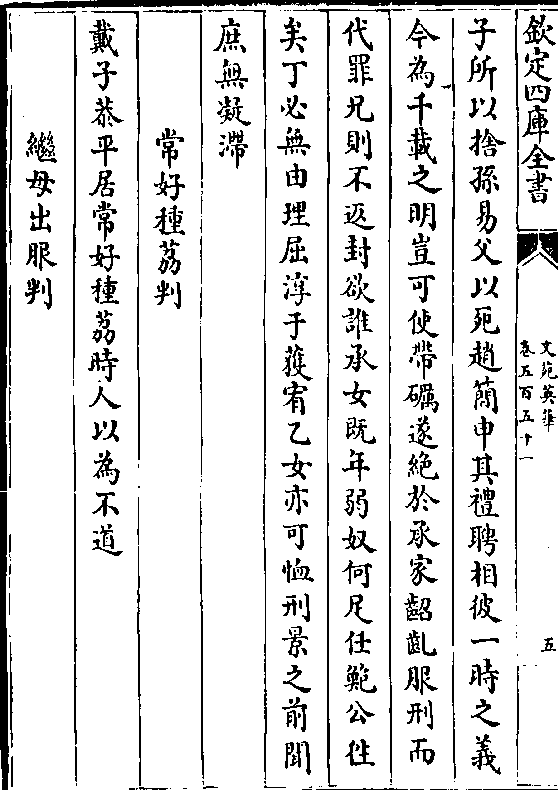 欽定四庫全書
文苑英華
卷五百五十一
五
子所以捨孫易父以死趙簡申其禮聘相彼一時之義
今為千載之明豈可使帶礪遂絕於承家齠齓服刑而
代罪兄則不返封欲誰承女既年弱奴何足仕鮑公徃
矣丁必無由理屈淳于獲宥乙女亦可恤刑景之前聞
庶無凝滯
常好種荔判
戴子恭平居常好種荔時人以為不道
繼母出服判